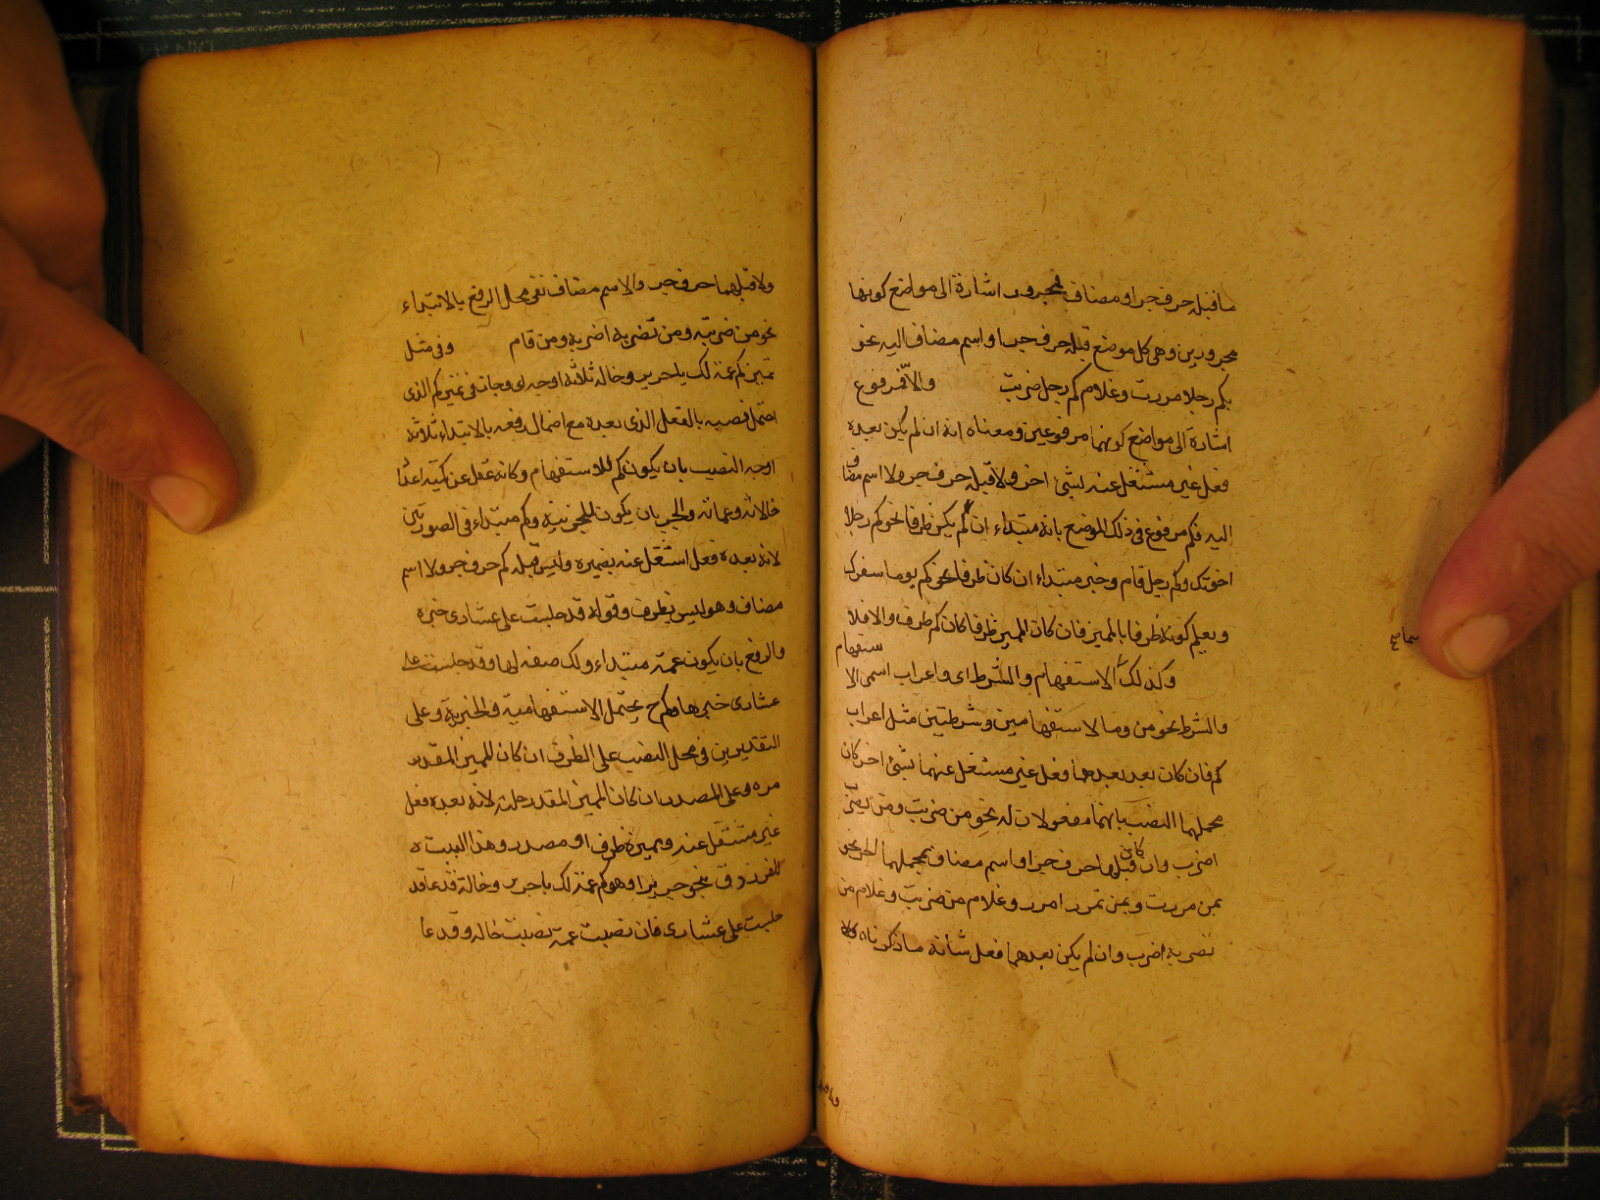 ما قبله حرف جر او مضاف فمجرور اشارة الى مواضع كونها
مجرورين وهى كل موضع قبله حرف جر او اسم مضاف اليه نحو
بكم رجلا مررت وغلام كم رجل ضربت والا فمرفوع
اشارة الى مواضع كونهما مرفوعين ومعناه انه ان لم يكن بعده
فعل غير مشتغل عنه بشئ اخر ولا قبله حرف جر ولا اسم مضاف
اليه فكم مرفوع فى ذلك الموضع بانه مبتداء ان لم يكن ظرفا نحو كم رجلا
اخوتك وكم رجل قام وخبر مبتداء ان كان ظرفا نحو كم يوما سفرك
ويعلم كونه ظرفا بالمميز فان كان المميز ظرفا كان كم ظرف والا فلا
وكذلك الاستفهام والشرط اى واعراب اسمى الاستفهام
والشرط نحو من وما لاستفهامين وشرطيتين مثل اعراب
كم فان كان بعد بعدهما فعل غير مشتغل عنهما بشئ اخر كان
محملهما النصب بانهما مفعولان له نحو من ضربت ومن تضرب
اضرب وان كان قبلهما حرف جر او اسم مضاف فمحملهما الجر نحو
بمن مررت وبمن تمرر امرر وغلام من ضربت وغلام من
تضربه اضرب وان لم يكن بعدهما فعل شانه ما ذكرناه
ولا قبلهما حرف جر والاسم مضاف ففى محل الرفع بالابتداء
نحو من ضربته ومن تضربه اضربه ومن قام وفى مثل
تميز كم عمة لك يا جرير وخالة ثلاثة اوجه اى وجاز فى تميز كم الذى
احتمل نصبه بالفعل الذى بعده مع احتمال رفعه بالابتداء ثلاثة
اوجه النصب بان يكون كم للاستفهام وكانه غفل عن كمية اعداد
خالاته وعماته والجر بان يكون للخبرية وكم مبتداء فى الصورتين
لانه بعده فعل اشتغل عنه بضميره وليس قبله كم حرف جر ولا اسم
مضاف وهو ليس بظرف وقوله قد حلبت على عشارى خبره
والرفع بان يكون عمة مبتداء ولك صفه لها وقد حلبت على
عشارى خبرها وكم ح يحتمل الاستفهامية والخبرية وعلى
التقديرين فى محل النصب على الظرف ان كان للميز المقدر
مره وعلى المصدر ان كان المميز المقدر حلبة لانه بعده فعل
غير مشتغل عنه ومميزه ظرف او مصدر وهذا البيت
للفرزدق يهجو جريرا وهو كم عمة لك يا جرير وخالة فدعا قد
حلبت على عشارى فان نصبت عمة نصبت خاله وفدعا